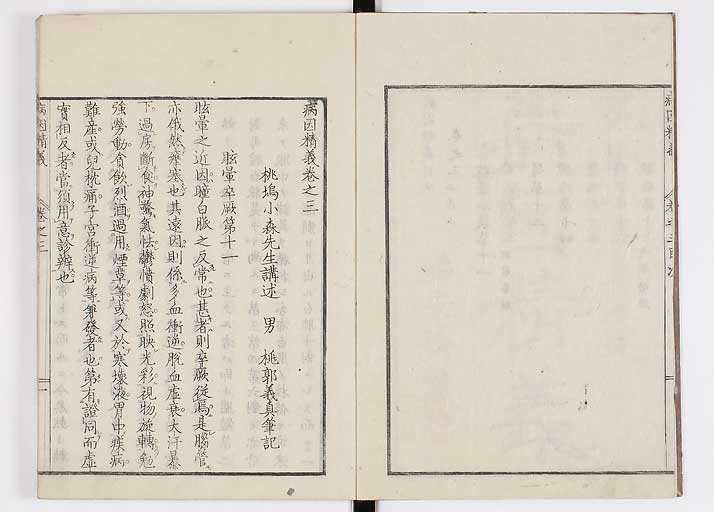 病因精義卷之三
桃塢小森先生講述　男　桃郭義真筆記
眩暈卒厥第十一
眩暈之近因瞳白脈之反常也甚者則卒厥從焉是腦管
亦俄然痺塞也其遠因則係多血衝逆脫血虛衰大汗暴
下過房斷食神驚氣怯鬱憤劇怒照映光彩視物旋轉勉
強勞動貪飲烈酒過用煙草等或又於寒壞液胃中疾病
難產或兒枕痛子宮衝逆病等乘發者也第有證同而虛
實相反者當須用意診辨也
病因精義　卷之三　一